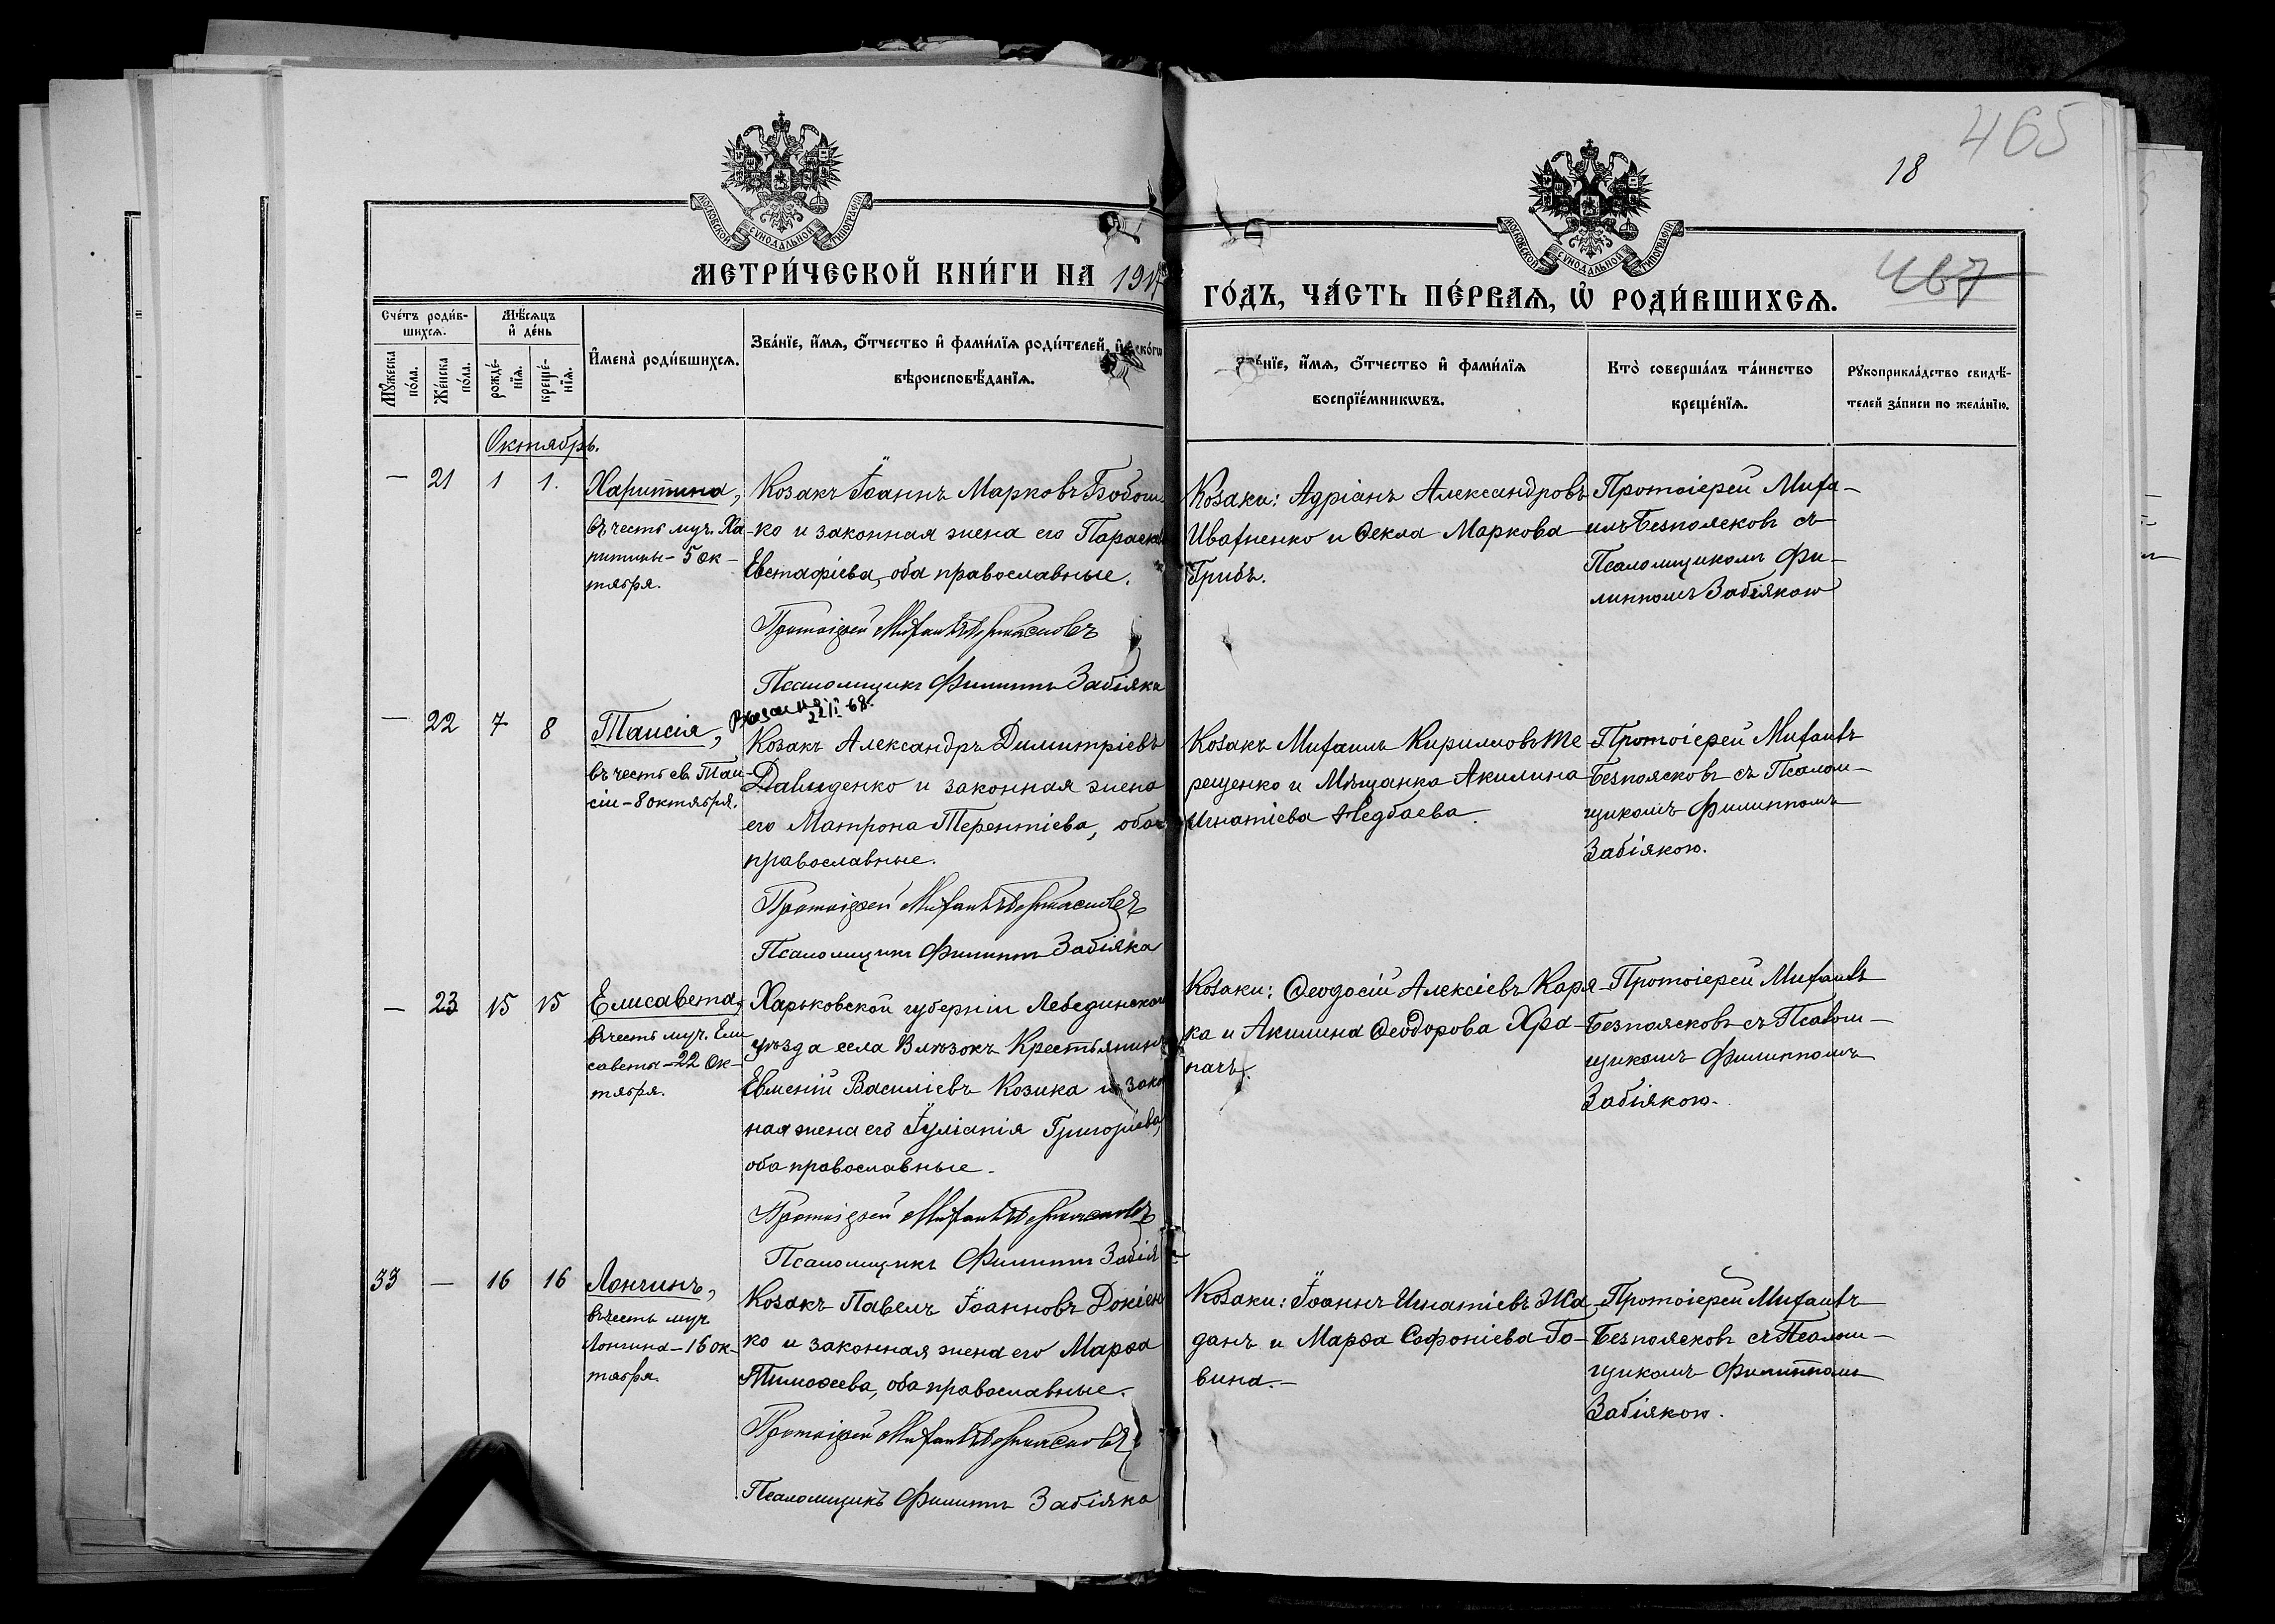 465
18
467
МОСКОВСКОЙ СѴНОДАЛЬНОЙ ТИПОГРАФІИ
МОСКОВСКОЙ СѴНОДАЛЬНОЙ ТИПОГРАФІИ
МЕТРИ́ЧЕСКОЙ КНИ́ГИ НА 1914
ГО́ДЪ, ЧА́СТЬ ПЕ́РВАѦ, Ѡ҆ РОДИ́ВШИХСѦ.
Сче́тъ роди́в-
шихсѧ.
Мѣ́сѧцъ
и҆ де́нь
Мꙋ́жеска
по́ла.
Же́нска
по́ла.
рожде́-
нїѧ.
креще́-
нїѧ.
И҆мена̀ роди́вшихсѧ.
Зва́нїе, и҆́мѧ, ѻ҆́тчество и҆ фами́лїѧ роди́телей, и҆ како́гѡ
вѣроисповѣ́данїѧ.
Зва́нїе, и҆́мѧ, ѻ҆́тчество и҆ фами́лїѧ
воспрїе́мникѡвъ.
Кто̀ соверша́лъ та́инство
креще́нїѧ.
Рꙋкоприкла́дство свидѣ́-
телей за́писи по жела́нїю.
Октябрь.
— 21 1 1.
Харитина,
въ честь муч. Ха
ритины – 5 Ок–
тября.
Козакъ Іоаннъ Марковъ
ко и законная жена его Параскева
Евстафіева, оба православные.
Протоіерей Михаилъ Безпоясковъ
Псаломщикъ Филиппъ Забіяка
Козаки: Адріанъ Александровъ
Ивахненко и Ѳекла Маркова
Грибъ.
Протоіерей Миха–
илъ Безпоясковъ съ
Псаломщикомъ Фи–
липпомъ Забіякою
— 22 7 8
Таисія,
въ честь св. Таи–
сіи – 8 октября.
22/I 68.
Козакъ Александръ Димитріевъ
Давиденко и законная жена
его Матрона Терентіева, оба
православные.
Протоіерей Михаилъ Безпоясковъ
Псаломщикъ Филиппъ Забіяка
Козакъ Михаилъ Кирилловъ Те
рещенко и Мѣщанка Акилина
Игнатіева Недбаева.
Протоіерей Михаилъ
Безпоясковъ съ Псалом–
щикомъ Филиппомъ
Забіякою.
— 23 15 15
Елисавета,
въ честь муч. Ели
саветы – 22 Ок–
тября.
Харьковской губерніи Лебединскаго
уѣзда села Влизокъ Крестьянинъ
Евмєній Василіевъ Козика и закон
ная жена его Іуліанія Григоріева,
оба православные.
Протоіерей Михаилъ Безпоясковъ
Псаломщикъ Филиппъ Забіяка
Козаки: Ѳеодосій Алексіевъ Каря–
ка и Акилина Ѳеодорова Хра–
пачъ.
Протоіерей Михаилъ
Безпоясковъ съ Псалом–
щикомъ Филиппомъ
Забіякою.
33 — 16 16
Лонгинъ,
въ честь муч.
Лонгина – 16 ок–
тября.
Козакъ Павелъ Іоанновъ Докіен
ко и законная жена его Марѳа
Тимоѳеева, оба православные.
Протоіерей Михаилъ Безпоясковъ
Псаломщикъ Филиппъ Забіяка
Козаки: Іоаннъ Игнатіевъ Жа–
данъ и Марѳа Софоніева Го–
вина.–
Протоіерей Михаилъ
Безпоясковъ съ Псалом–
щикомъ Филиппомъ
Забіякою.